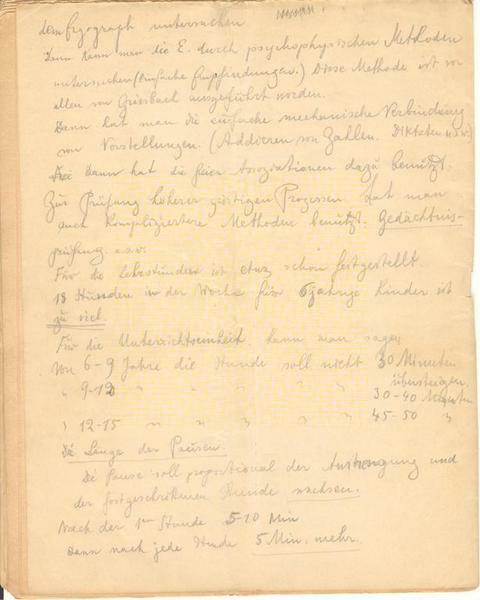 dem Ergograph untersuchen.
Dann kann man die E. durch psychophysischen Methoden
untersuchen (einfache Empfindungen.) Diese Methode ist vor
allen von Griesbach ausgeführt worden.
Dann hat man die einfache mechanische Verbindung
von Vorstellungen. (Addieren von Zahlen. Diktaten u.s.w.)
Dann hat die freien Assoziationen dazu benützt.
Zur Prüfung höherer geistigen Prozessen hat man
auch kompliziertere Methoden benützt. Gedächtnis-
prüfung u.s.w.
Für die Lehrstunden ist etwas schon festgestellt.
18 Stunden in der Woche für 6jährige Kinder ist
zu viel.
Für die Unterrichtseinheit kann man sagen
Von 6-9 Jahre die Stunde soll nicht 30 Minuten
übersteigen
" 9-12 " " " " " 30-40 Minuten
" 12-15 " " " " 45-50 "
Die Länge der Pausen.
Die Pause soll proportional der Anstrengung und
der fortgeschrittenen Stunde wachsen.
Nach der 1ten Stunde 5-10 Min
Dann nach jede Stunde 5 Min. mehr.